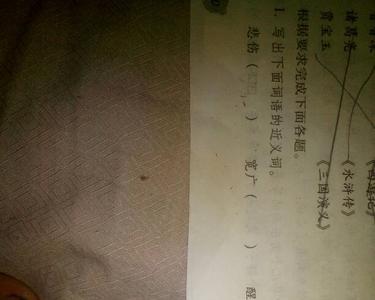 诸葛亮 《水浒传》
贾宝玉 《三国演义》
根据要求完成下面各题。
1. 写出下面词语的近义词。
悲伤（ ） 宽广（ ） 醒